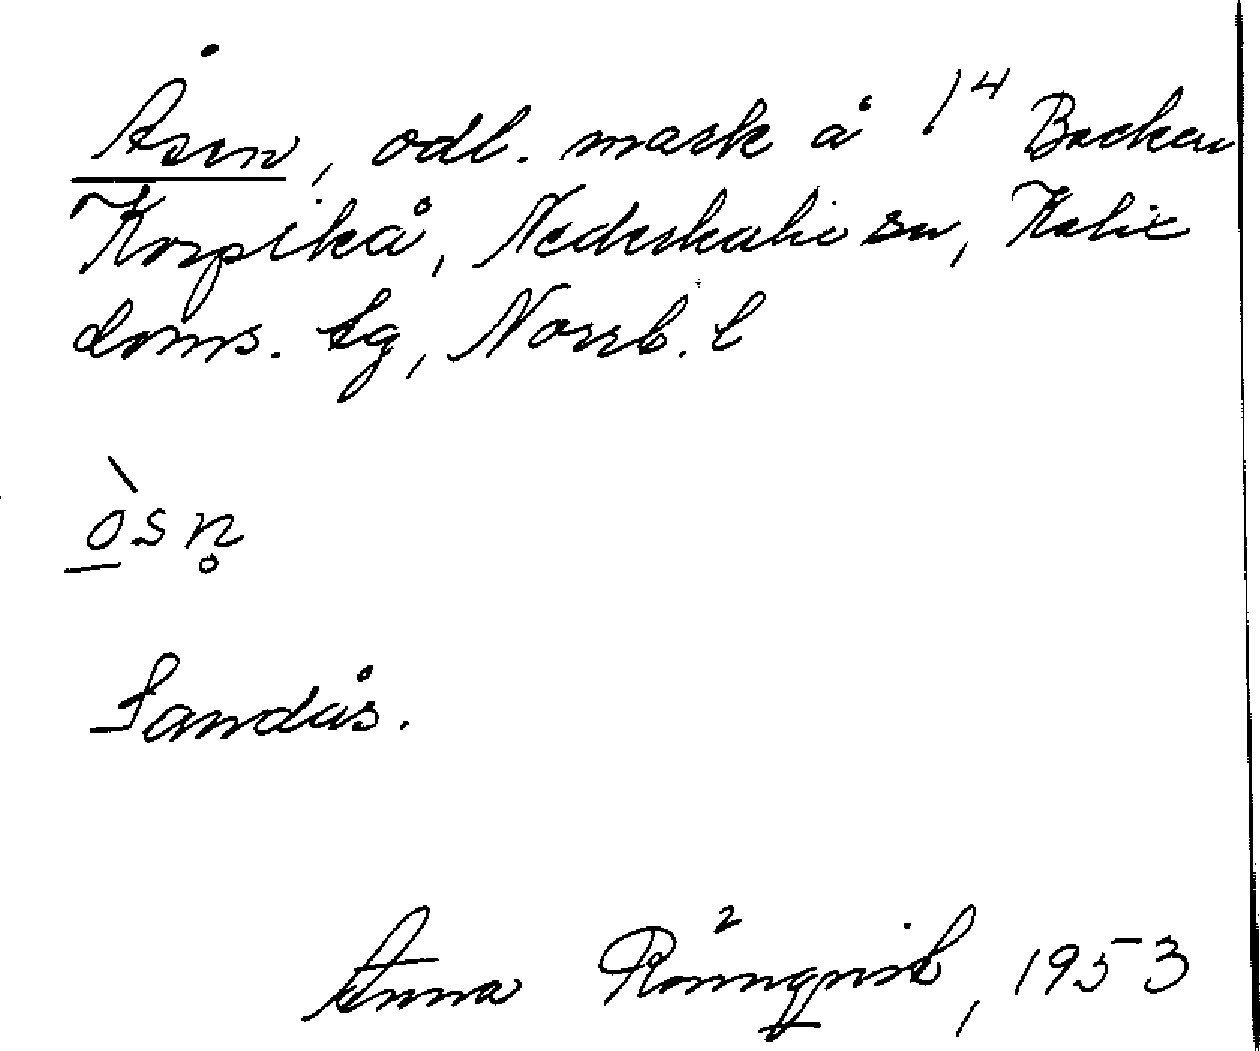 Åsen, odl. mark å 1⁴ Backen
Korpikå, Nederkalix sn, Kalix
doms. lg, Norrb. l
ò̱sn̥
Sandås.
Anna Rönnqvist, 1953